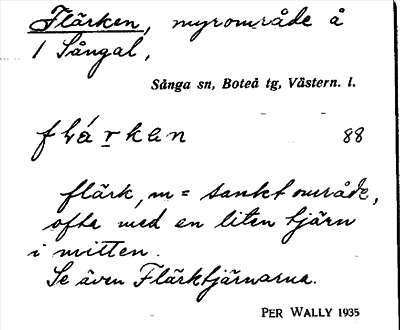 Flärken, myrområde å
1 Sångal,
Sånga sn, Boteå tg, Västern. l.
flá̈rkan 88
flärk, m = sankt område,
ofta med en liten tjärn
i mitten.
Se även Flärktjärnarna.
PER WALLY 1935